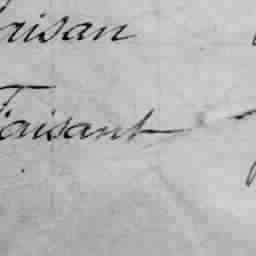 aisan
Faisant